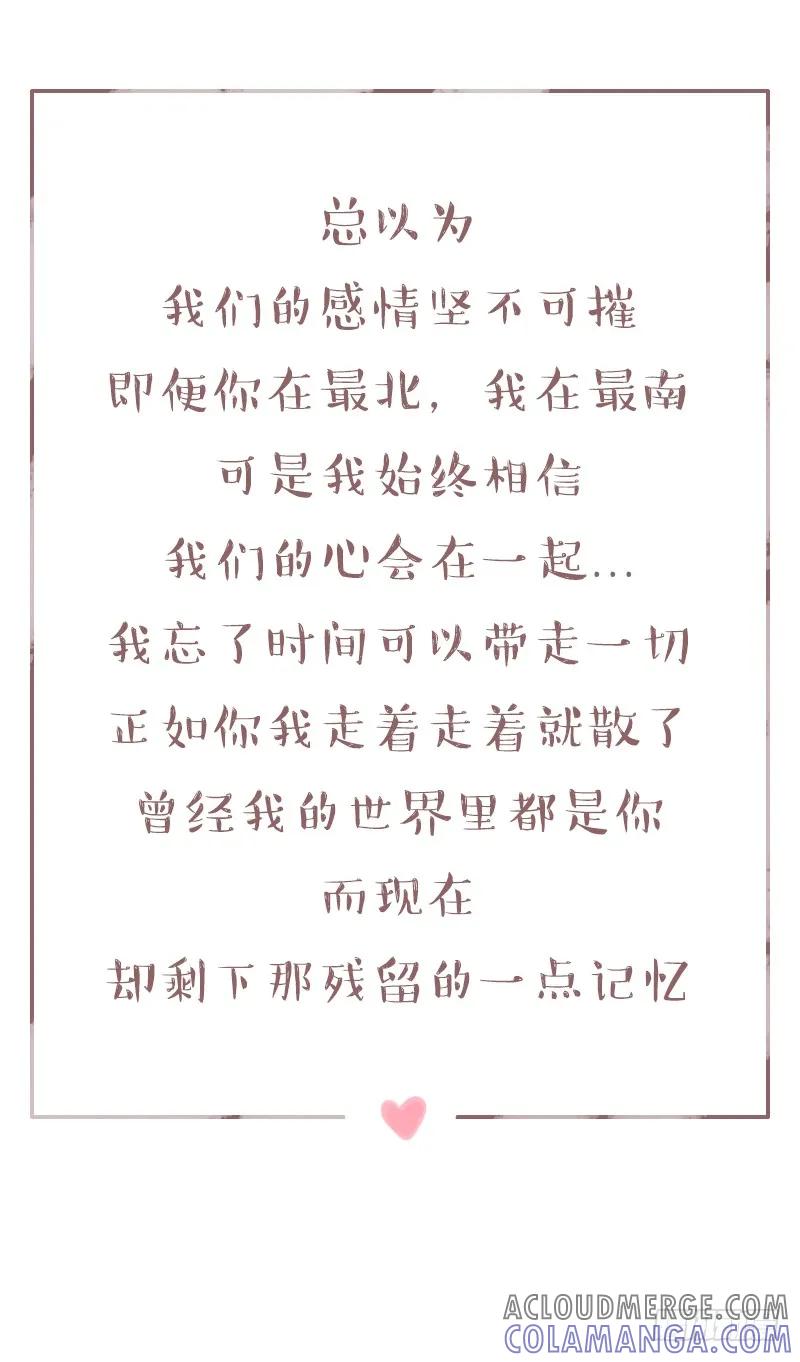 总以为
我们的感情坚不可摧
即便你在最北，我在最南
可是我始终相信
我们的心会在一起...
我忘了时间可以带走一切
正如你我走着走着就散了
曾经我的世界里都是你
而现在
却剩下那残留的一点记忆
ACLOUDMERGE.COM
COLAMANGA.COM